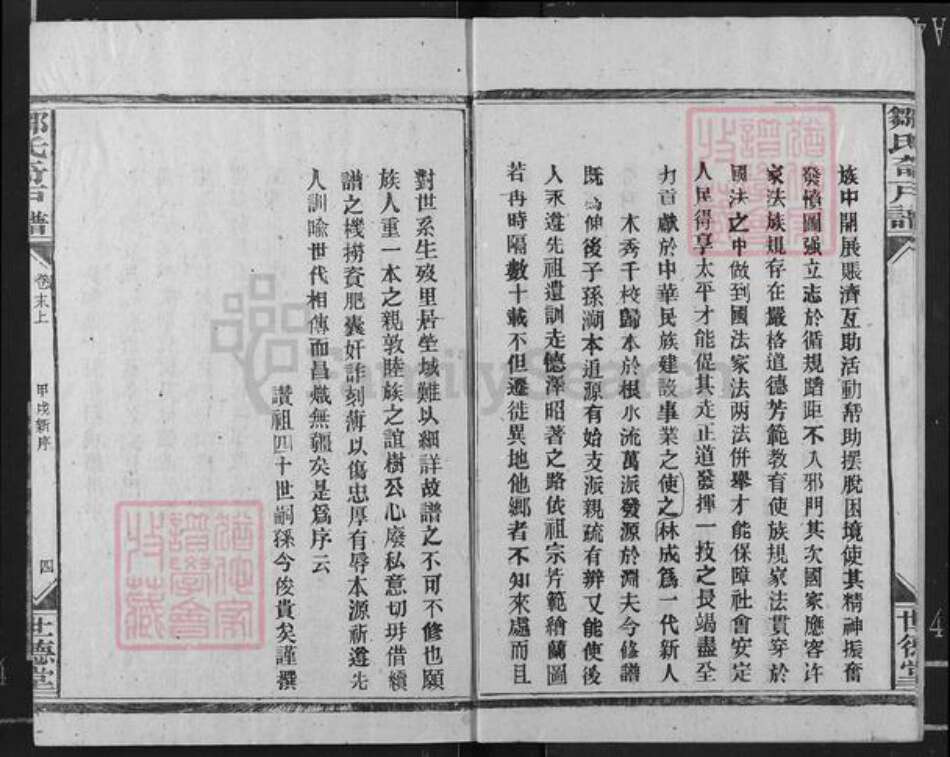 鄒氏斎戶譜
世德堂
族中開展賬濟互助活動幇助摆脫困境使其精神振奮
發憤圖强立志於循規蹈距不入邪門其次國家應容许
家法族規存在嚴格道德芳範敎育使族規家法貫穿於
國法之中做到國法家法两法併舉才能保障社會安定
人民得享太平才能促其走正道發揮一技之長竭盡至
力貢獻於中華民族建設事業之使之林成爲一代新人
木秀千枝歸本於根水流萬派發源於淵夫今修譜
既為伸後子孫溯本追源有始支派親疏有辨又能使後
人永遵先祖遺訓走德澤昭著之路依祖宗芳範繪蘭圖
若冉時隔數十載不但遷徙異地他鄉者不知來處而且
對世系生歿里居塋域難以細詳故譜之不可不修也願
族人重一本之親敦睦族之誼樹公心廢私意切玬借續
譜之機撈資肥囊奸詐刻薄以傷忠厚有辱本源祈遵先
人訓喻世代相傳而昌熾無疆矣是爲序云
讚祖四十世嗣孫今俊貴矣謹撰
鄒氏斎戶譜
卷末上
甲戍新序
四
世德堂